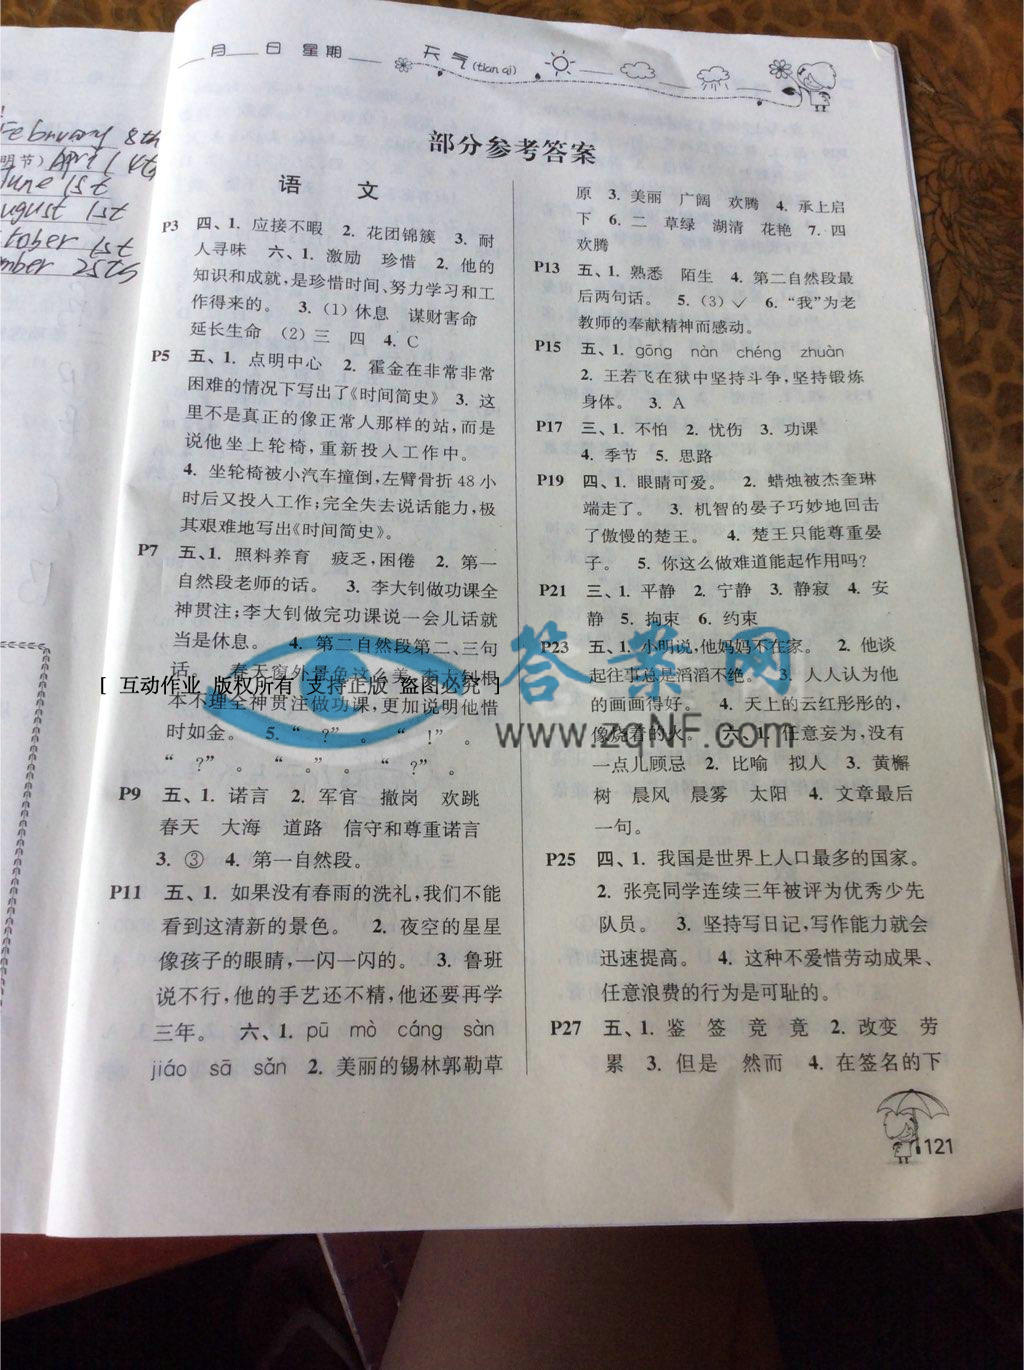 February 8th
明节) April 4th
June 1st
ugust 1st
tober 1st
mber 25th
月 日 星期 天气(tian qi)
部分参考答案
语 文
P3 四、1. 应接不暇 2. 花团锦簇 3. 耐
人寻味 六、1. 激励 珍惜 2. 他的
知识和成就,是珍惜时间、努力学习和工
作得来的。 3. (1)休息 谋财害命
延长生命 (2)三 四 4. C
P5 五、1. 点明中心 2. 霍金在非常非常
困难的情况下写出了《时间简史》 3. 这
里不是真正的像正常人那样的站,而是
说他坐上轮椅,重新投入工作中。
4. 坐轮椅被小汽车撞倒,左臂骨折 48 小
时后又投入工作;完全失去说话能力,极
其艰难地写出《时间简史》。
P7 五、1. 照料养育 疲乏,困倦 2. 第一
自然段老师的话。 3. 李大钊做功课全
神贯注;李大钊做完功课说一会儿话就
当是休息。 4. 第二自然段第二、三句
话。 春天窗外景色这么美,李大钊根
[ 互动作业 版权所有 支持正版 盗图必究 ]
本不理全神贯注做功课,更加说明他惜
时如金。 5. “ ?” 。 “ !” 。
“ ?” 。 “ 。” 。 “ ?” 。
P9 五、1. 诺言 2. 军官 撤岗 欢跳
春天 大海 道路 信守和尊重诺言
3. ③ 4. 第一自然段。
P11 五、1. 如果没有春雨的洗礼,我们不能
看到这清新的景色。 2. 夜空的星星
像孩子的眼睛,一闪一闪的。 3. 鲁班
说不行,他的手艺还不精,他还要再学
三年。 六、1. pū mò cáng sàn
jiáo sā sǎn 2. 美丽的锡林郭勒草
原 3. 美丽 广阔 欢腾 4. 承上启
下 6. 二 草绿 湖清 花艳 7. 四
欢腾
P13 五、1. 熟悉 陌生 4. 第二自然段最
后两句话。 5. (3)✓ 6. “我”为老
教师的奉献精神而感动。
P15 五、1. gōng nàn chéng zhuàn
2. 王若飞在狱中坚持斗争,坚持锻炼
身体。 3. A
P17 三、1. 不怕 2. 忧伤 3. 功课
4. 季节 5. 思路
P19 四、1. 眼睛可爱。 2. 蜡烛被杰奎琳
端走了。 3. 机智的晏子巧妙地回击
了傲慢的楚王。 4. 楚王只能尊重晏
子。 5. 你这么做难道能起作用吗?
P21 三、1. 平静 2. 宁静 3. 静寂 4. 安
静 5. 拘束 6. 约束
P23 五、1. 小明说,他妈妈不在家。 2. 他谈
起往事总是滔滔不绝。 3. 人人认为他
的画画得好。 4. 天上的云红彤彤的,
像烧着的火。 六、1. 任意妄为,没有
一点儿顾忌 2. 比喻 拟人 3. 黄槲
树 晨风 晨雾 太阳 4. 文章最后
一句。
P25 四、1. 我国是世界上人口最多的国家。
2. 张亮同学连续三年被评为优秀少先
队员。 3. 坚持写日记,写作能力就会
迅速提高。 4. 这种不爱惜劳动成果、
任意浪费的行为是可耻的。
P27 五、1. 鉴 签 竞 竟 2. 改变 劳
累 3. 但是 然而 4. 在签名的下
121
答案网
www.zqNF.com